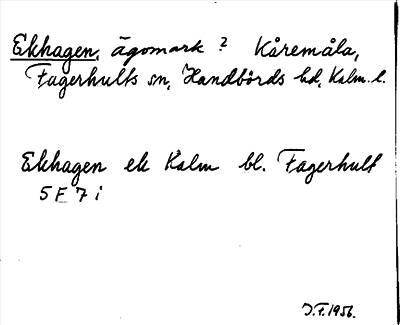 Ekhagen, ägomark ? Kåremåla,
Fagerhults sn, Handbörds hd, Kalm. l.
Ekhagen ek Kalm bl. Fagerhult
5 F 7 i
J.F. 1956.